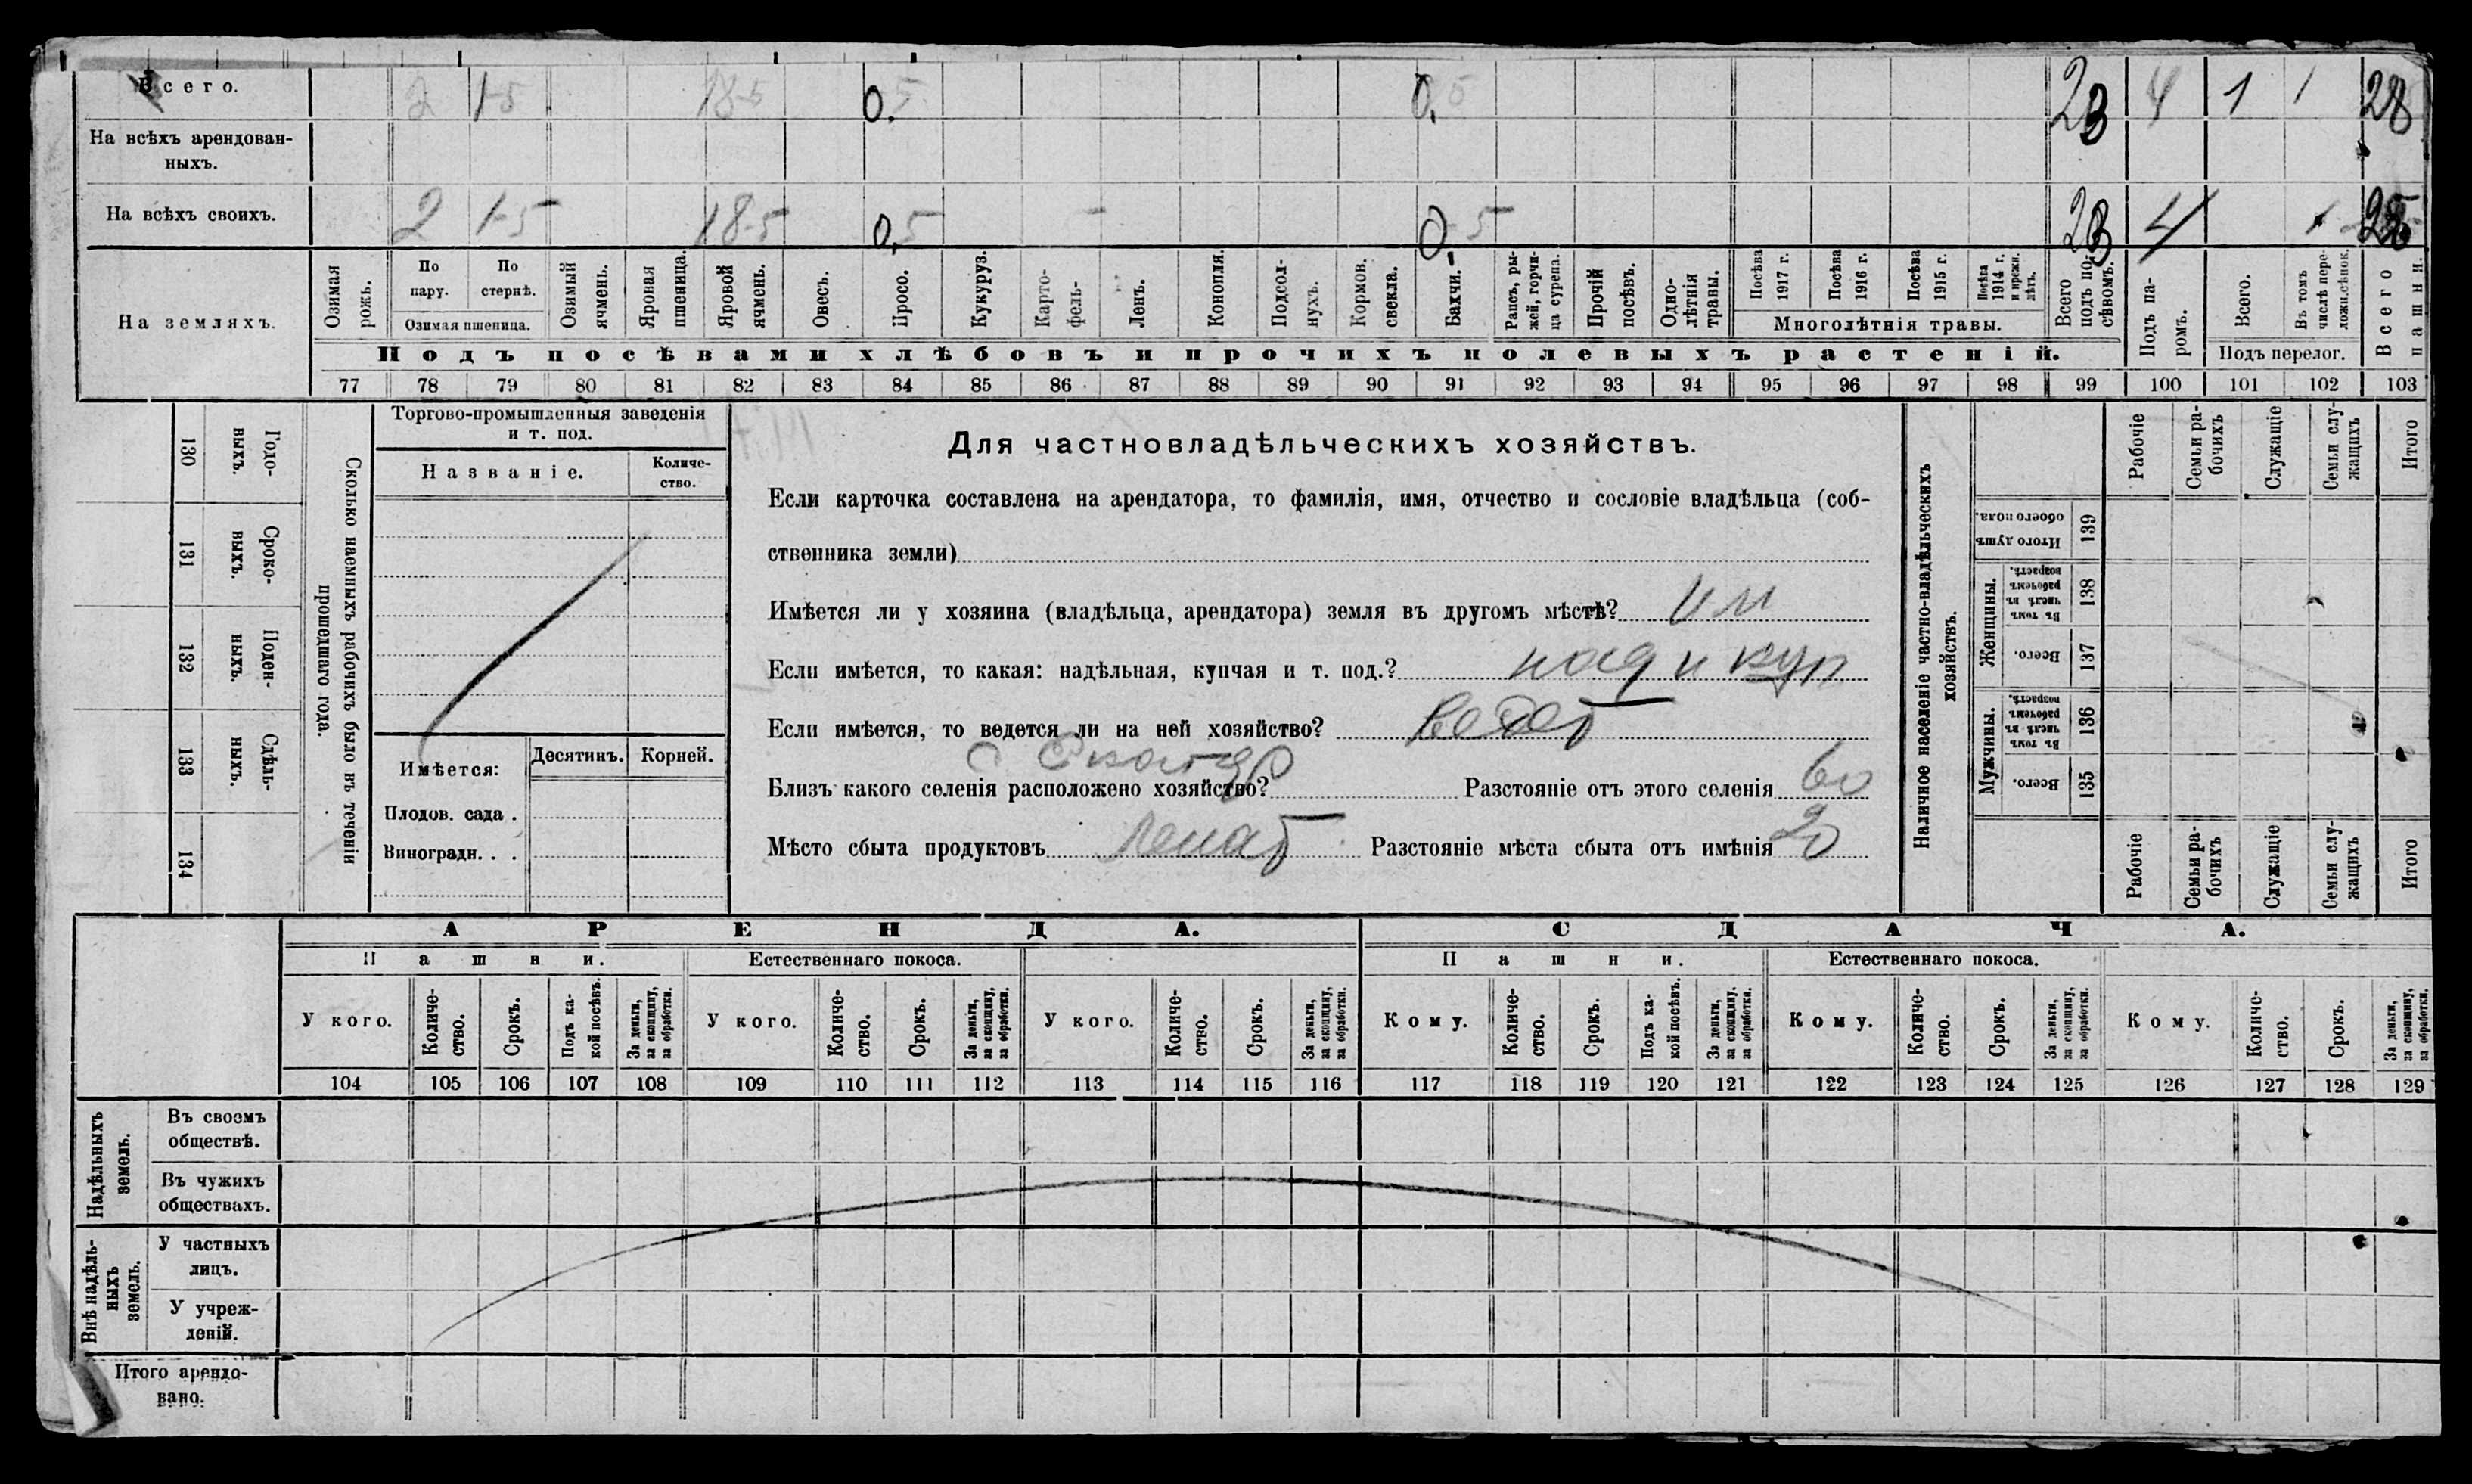 Всего. 2 1-5 18-5 0.5 0.5 23 4 1 1 28
На всѣхъ арендован-
ныхъ.
На всѣхъ своихъ. 2 1-5 18-5 0,5 0-5 23 4
На земляхъ.
Озимая рожь.
По пару.
По стернѣ.
Озимая пшеница.
Озимый ячмень.
Яровая пшеница.
Яровой ячмень.
Овесъ.
Просо.
Кукуруз.
Карто-
фель-
Ленъ.
Конопля.
Подсол-
нухъ.
Кормов. свекла.
Бахчи.
Рапсъ, ры-
жей, горчи-
ца сурепа.
Прочій посѣвъ.
Одно-
лѣтнія
травы.
Посѣва 1917 г.
Посѣва 1916 г.
Посѣва 1915 г.
Посѣва 1914 г. и прежн. лѣтъ.
Многолѣтнія травы.
Всего подъ по-
сѣвомъ.
Подъ па-
ромъ.
Всего.
Въ томъ числѣ пере-
ложн. сѣнок.
Подъ перелог.
Всего пашни.
Подъ посѣвами хлѣбовъ и прочихъ полевыхъ растеній.
77 78 79 80 81 82 83 84 85 86 87 88 89 90 91 92 93 94 95 96 97 98 99 100 101 102 103
Сколько наемныхъ рабочихъ было въ теченіи
прошедшаго года.
Годо-
выхъ.
130
Сроко-
выхъ.
131
Поден-
ныхъ.
132
Сдѣль-
ныхъ.
133
134
Торгово-промышленныя заведенія
и т. под.
Названіе.
Количе-
ство.
Имѣется:
Десятинъ. Корней.
Плодов. сада .
Виноградн. . .
Для частновладѣльческихъ хозяйствъ.
Если карточка составлена на арендатора, то фамилія, имя, отчество и сословіе владѣльца (соб-
ственника земли)
Имѣется ли у хозяина (владѣльца, арендатора) земля въ другомъ мѣстѣ? им
Если имѣется, то какая: надѣльная, купчая и т. под.? над и куп
Если имѣется, то ведется ли на ней хозяйство? ведет
Близъ какого селенія расположено хозяйство? Разстояніе отъ этого селенія 60
Мѣсто сбыта продуктовъ Разстояніе мѣста сбыта отъ имѣнія 20
Наличное населеніе частно-владѣльческихъ
хозяйствъ.
Рабочіе
Семьи ра-
бочихъ
Служащіе
Семьи слу-
жащихъ
Итого
Итого душъ обоего пола. 139
Женщины.
Въ томъ числѣ въ рабочемъ возрастѣ. 138
Всего. 137
Мужчины.
Въ томъ числѣ въ рабочемъ возрастѣ. 136
Всего. 135
Рабочіе
Семьи ра-
бочихъ
Служащіе
Семьи слу-
жащихъ
Итого
АРЕНДА. СДАЧА.
Пашни. Естественнаго покоса. Пашни. Естественнаго покоса.
У кого.
Количе-
ство.
Срокъ.
Подъ ка-
кой посѣвъ.
За деньги,
за скопщину,
за обработки.
У кого.
Количе-
ство.
Срокъ.
За деньги,
за скопщину,
за обработки.
У кого.
Количе-
ство.
Срокъ.
За деньги,
за скопщину,
за обработки.
Кому.
Количе-
ство.
Срокъ.
Подъ ка-
кой посѣвъ.
За деньги,
за скопщину,
за обработки.
Кому.
Количе-
ство.
Срокъ.
За деньги,
за скопщину,
за обработки.
Кому.
Количе-
ство.
Срокъ.
За деньги,
за скопщину,
за обработки.
104 105 106 107 108 109 110 111 112 113 114 115 116 117 118 119 120 121 122 123 124 125 126 127 128 129
Надѣльныхъ
земель.
Въ своемъ
обществѣ.
Въ чужихъ
обществахъ.
Внѣ надѣль-
ныхъ
земель.
У частныхъ
лицъ.
У учреж-
деній.
Итого арендо-
вано.